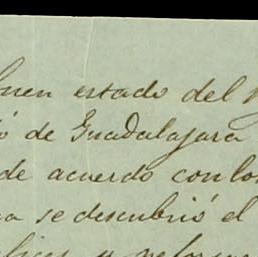 buen estado del
ó de Guadalajara
de acuerdo con los
a se descubrió el